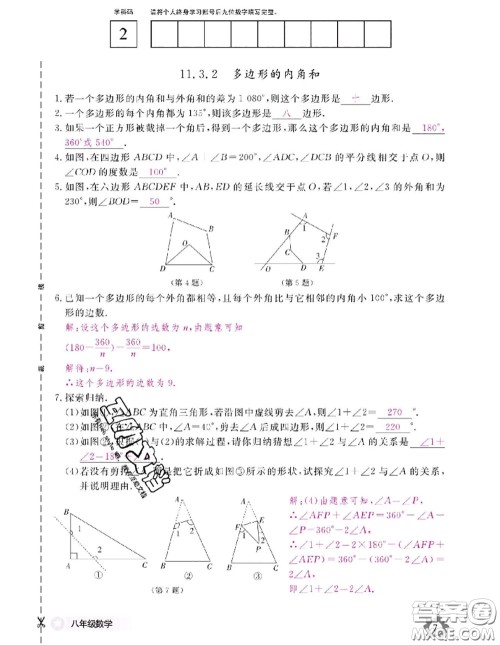 学科码 请将个人终身学习账号后九位数字填写完整。
2
11.3.2 多边形的内角和
1.若一个多边形的内角和与外角和的差为1 080°,则这个多边形是 十 边形.
2.一个多边形的每个内角都为135°,则该多边形是 八 边形.
3.如果一个正方形被截掉一个角后,得到一个多边形,那么这个多边形的内角和是 180°,
360°或540° .
4.如图,在四边形ABCD中,∠A+∠B=200°,∠ADC,∠DCB的平分线相交于点O,则
∠COD的度数是 100° .
5.如图,在六边形ABCDEF中,AB,ED的延长线交于点O,若∠1,∠2,∠3的外角和为
230°,则∠BOD= 50 °.
A
B
O
D
C
A
1
F
B
2
C
3
O
D
E
(第4题)
(第5题)
6.已知一个多边形的每个外角都相等,且一个外角比与它相邻的内角小100°,求这个多边
形的边数.
解:设这个多边形的边数为n,由题意可知
(180-360/n)-360/n=100,
解得:n=9.
∴这个多边形的边数为9.
7.探索归纳.
(1)如图 为直角三角形,若沿图中虚线剪去∠A,则∠1+∠2= 270 °.
(2)如图 中,∠A=40°,剪去∠A后,则∠1+∠2= 220 °.
(3)如图 的求解过程,请你归纳猜想∠1+∠2与∠A的关系是 ∠1+
∠2=18
(4)若没有剪 是把它折成如图③所示的形状,试探究∠1+∠2与∠A的关系,
并说明理由.
解:(4)由题意可知,∠A=∠P,
∴∠AFP+∠AEP=360°-∠A
-∠P=360°-2∠A,
∴∠1+∠2=2×180°-(∠AFP+
∠AEP)=360°-(360°-2∠A)
=2∠A.
A
1
2
B
C
①
A
1
2
B
C
②
A
E
F
1
2
P
B
C
③
(第7题)
八年级数学
7
答案圈
MXQE.COM